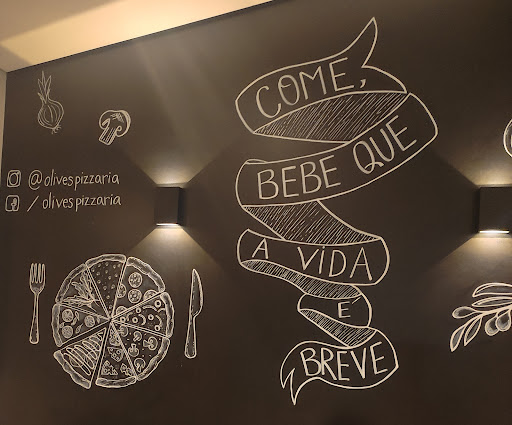 COME,
BEBE QUE
A VIDA
É
BREVE
@olivespizzaria
/olivespizzaria